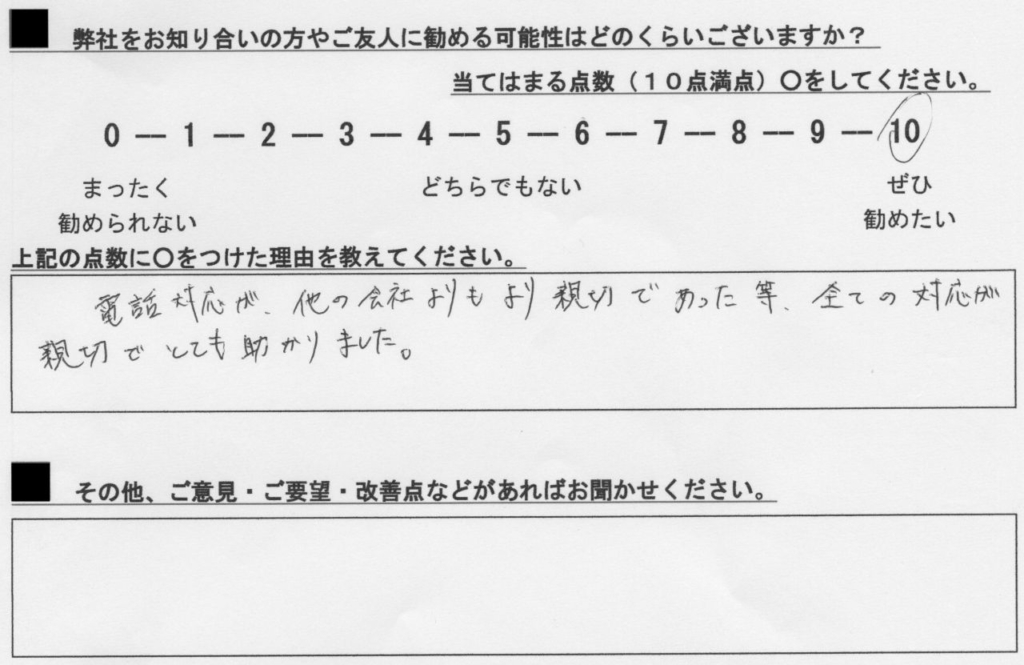 弊社をお知り合いの方やご友人に勧める可能性はどのくらいございますか？
当てはまる点数（１０点満点）〇をしてください。
0 ― 1 ― 2 ― 3 ― 4 ― 5 ― 6 ― 7 ― 8 ― 9 ― 10
まったく どちらでもない ぜひ
勧められない 勧めたい
上記の点数に〇をつけた理由を教えてください。
電話対応が、他の会社よりもより親切であった等、全ての対応が
親切でとても助かりました。
その他、ご意見・ご要望・改善点などがあればお聞かせください。